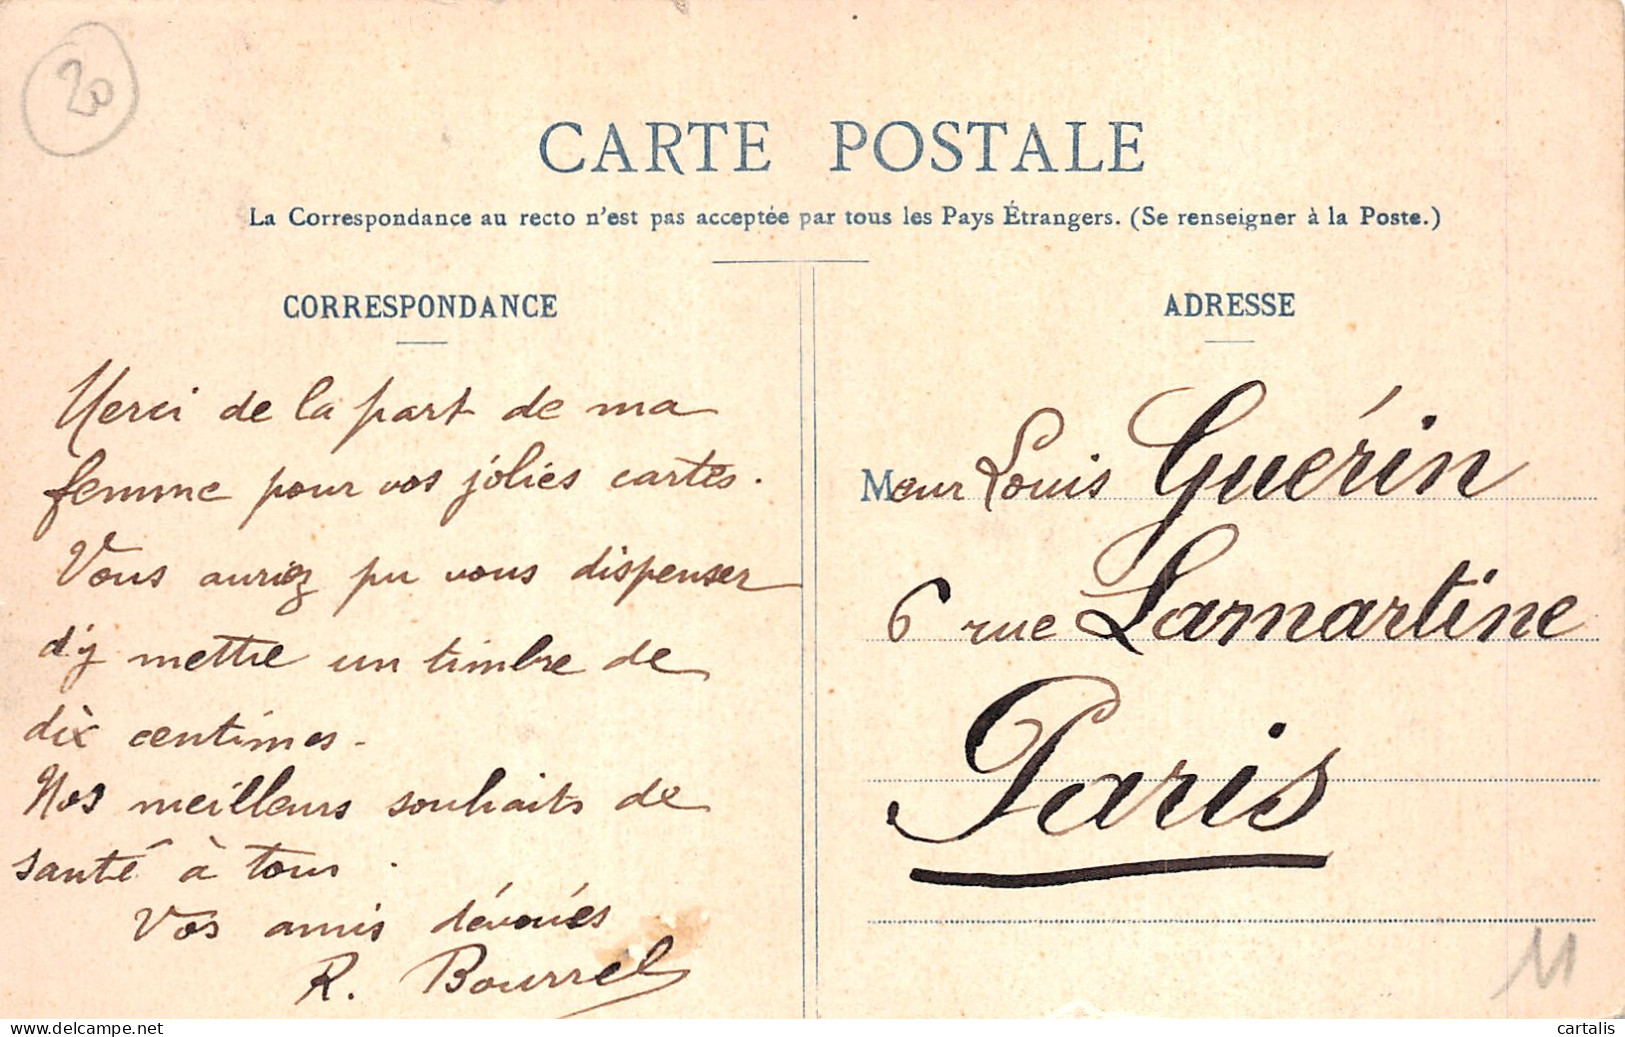 20
CARTE POSTALE
La Correspondance au recto n'est pas acceptée par tous les Pays Étrangers. (Se renseigner à la Poste.)
CORRESPONDANCE
Merci de la part de ma
femme pour vos jolies cartes.
Vous auriez pu vous dispenser
d'y mettre un timbre de
dix centimes.
Nos meilleurs souhaits de
santé à tous.
Vos amis dévoués
R. Bourrel
ADRESSE
Meur Louis Guérin
6 rue Lamartine
Paris
M
www.delcampe.net
cartalis